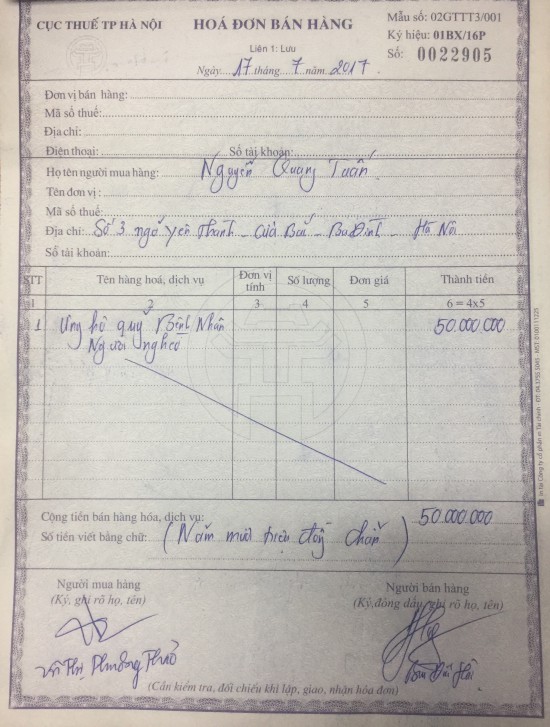 CỤC THUẾ TP HÀ NỘI
HOÁ ĐƠN BÁN HÀNG
Mẫu số: 02GTTT3/001
Ký hiệu: 01BX/16P
Liên 1: Lưu
Số: 0022905
Ngày 17 tháng 7 năm 2017
Đơn vị bán hàng:
Mã số thuế:
Địa chỉ:
Điện thoại: Số tài khoản:
Họ tên người mua hàng: Nguyễn Quang Tuấn
Tên đơn vị:
Mã số thuế:
Địa chỉ: Số 3 ngõ Yên Thành - Cửa Bắc - Ba Đình - Hà Nội
Số tài khoản:
STT Tên hàng hoá, dịch vụ Đơn vị tính Số lượng Đơn giá Thành tiền
1 2 3 4 5 6 = 4x5
1 Ủng hộ quỹ Bệnh Nhân 50.000.000
Người nghèo
Cộng tiền bán hàng hóa, dịch vụ: 50.000.000
Số tiền viết bằng chữ: (Năm mươi triệu đồng chẵn)
Người mua hàng Người bán hàng
(Ký, ghi rõ họ, tên) (Ký, đóng dấu, ghi rõ họ, tên)
Thị Phương Thảo
(Cần kiểm tra, đối chiếu khi lập, giao, nhận hóa đơn)